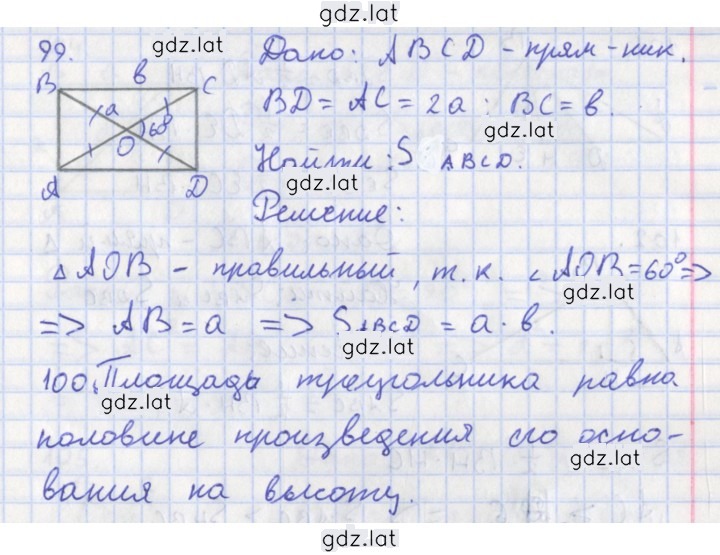 gdz.lat
99.
gdz.lat
Дано: ABCD - прям-ник.
B в C
a
60°
O
A D
BD = AC = 2a ; BC = в.
gdz.lat
Найти: S ABCD.
gdz.lat
Решение:
gdz.lat
△ AOB - правильный, т.к. ∠ AOB = 60° =>
gdz.lat
=> AB = a => SABCD = a · в.
gdz.lat
100. Площадь треугольника равна
gdz.lat
половине произведения его осно-
gdz.lat
вания на высоту.
gdz.lat